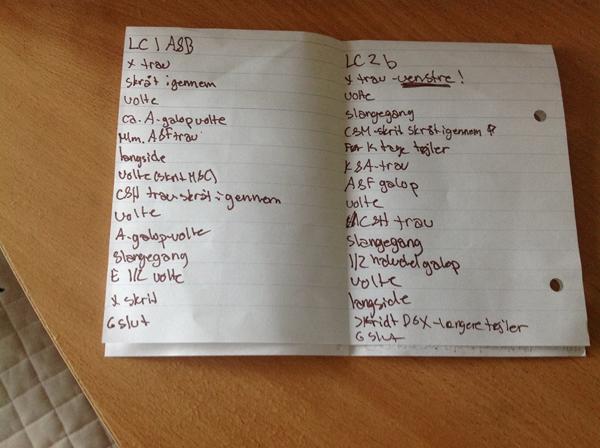 LC 1 A&B
x trav
skråt igennem
volte
ca. A-galop volte
Mlm. A&F trav
langside
volte (skrit M&C)
C&H trav-skråt igennem
volte
A-galop-volte
slangegang
E 1/2 volte
x skrit
G slut
LC 2 b
x trav-venstre!
volte
slangegang
C&M-skrit skråt igennem
Før K tage tøjler
K&A-trav
A&F galop
volte
C&H trav
slangegang
1/2 galop
volte
langside
skridt D&X-længere tøjler
G slut